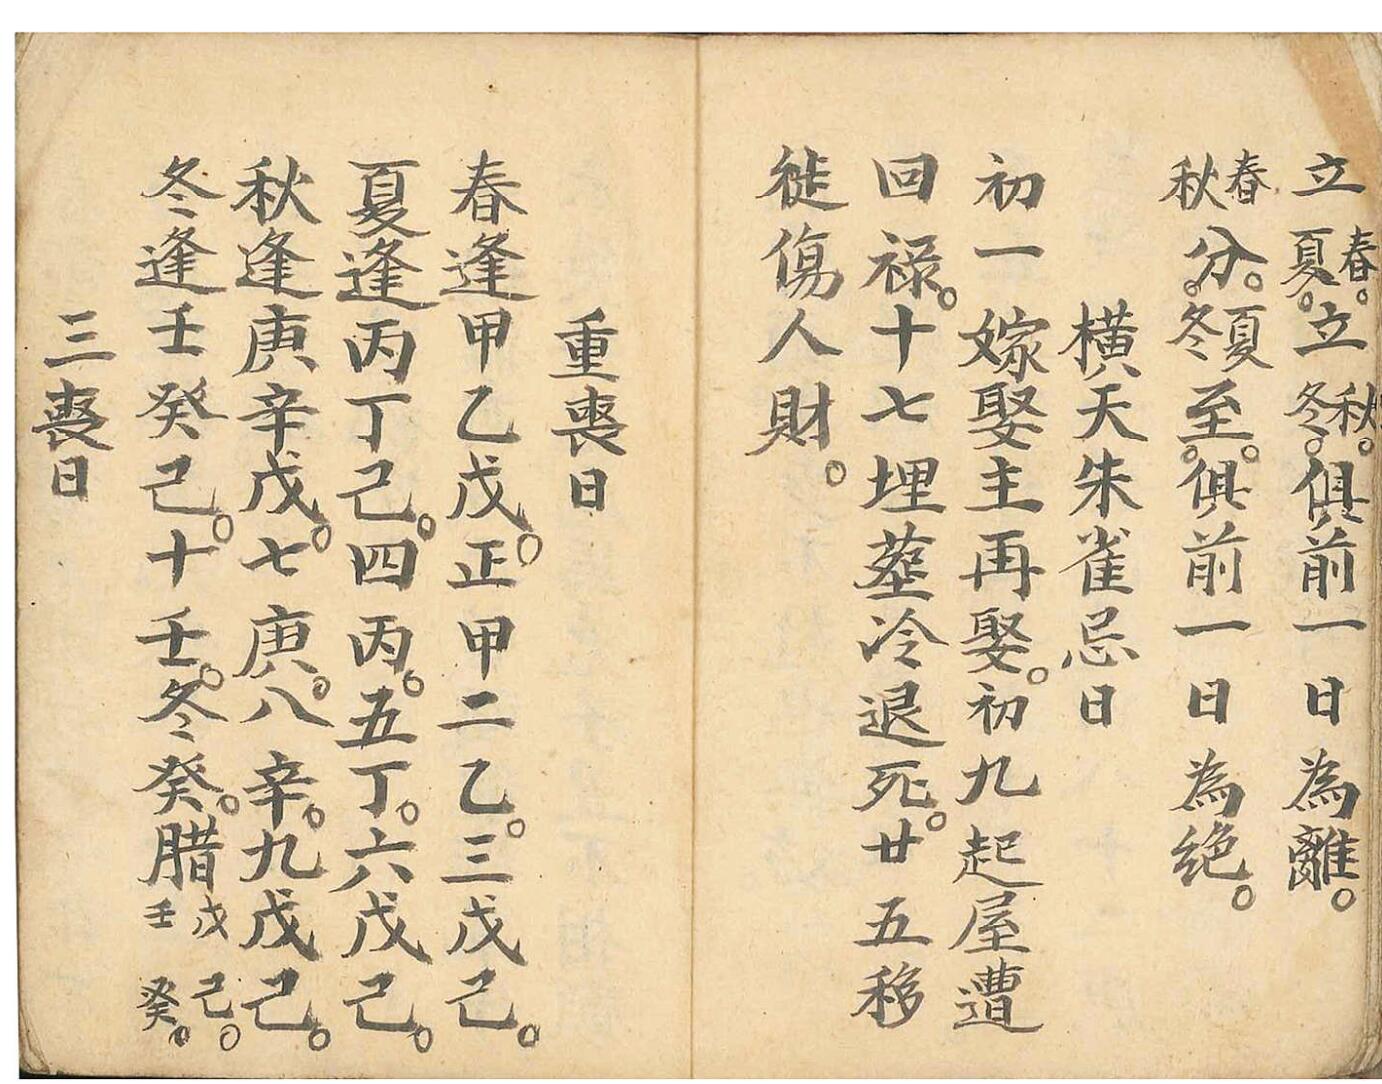 立春夏。立秋冬。俱前一日為離。
春秋分。夏冬至。俱前一日為絶。
橫天朱雀忌日
初一嫁娶主再娶。初九起屋遭
回禄。十七埋塟冷退死。廿五移
徙傷人財。
重喪日
春逢甲乙戊。正甲二乙。三戊己。
夏逢丙丁己。四丙。五丁。六戊己。
秋逢庚辛戊。七庚。八辛。九戊己。
冬逢壬癸己。十壬。冬癸。腊戊己。壬癸。
三喪日